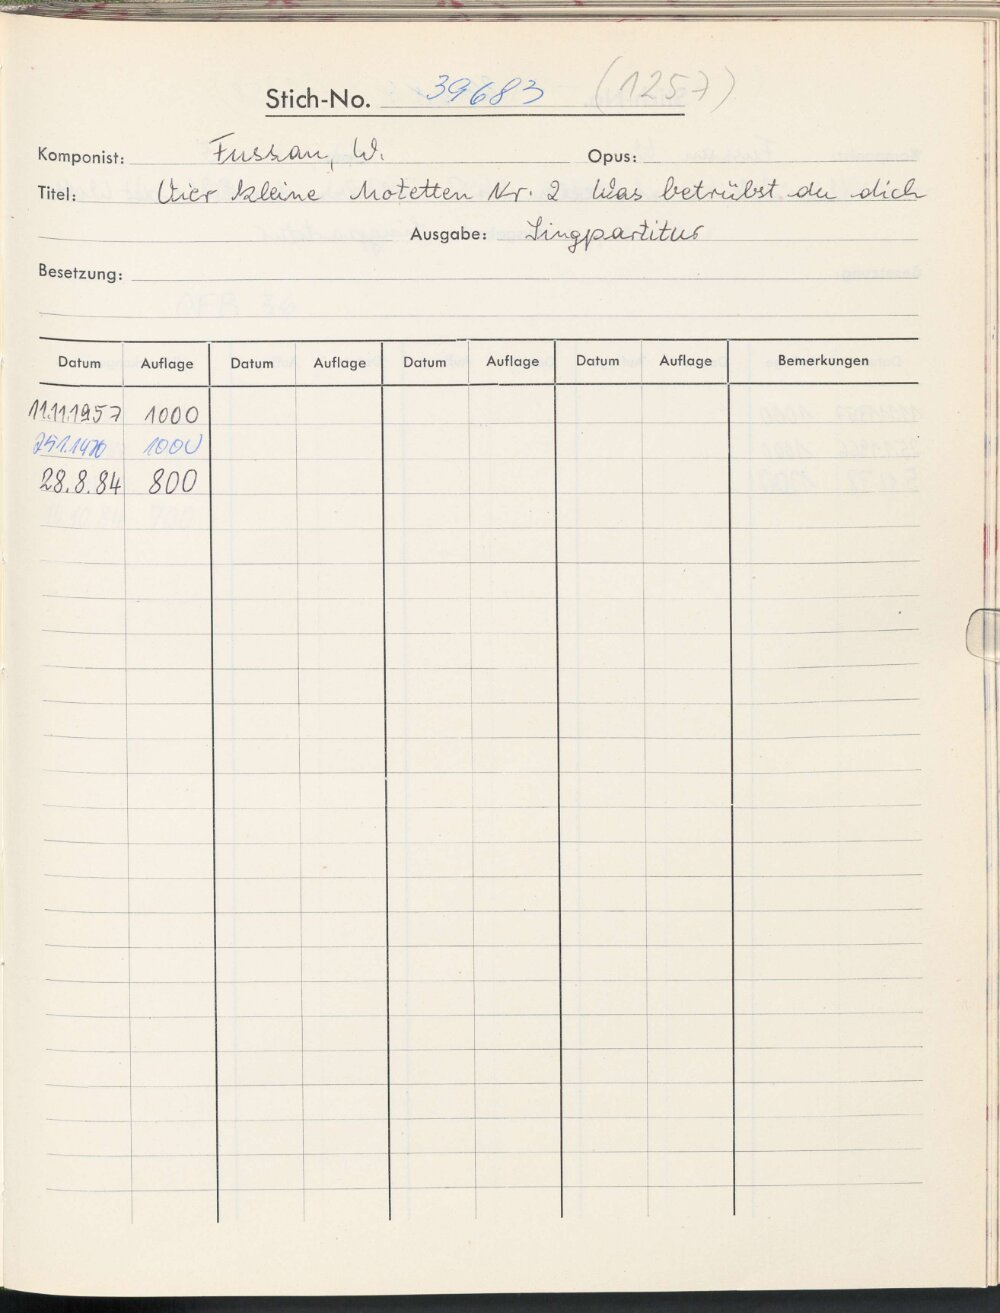 Stich-No. 39683 (1257)
Komponist: Fussan, W. Opus:
Titel: Vier kleine Motetten Nr. 2 Was betrübst du dich
Ausgabe: Singpartitur
Besetzung:
Datum Auflage Datum Auflage Datum Auflage Datum Auflage Bemerkungen
11.11.1957 1000
25.1.1970 1000
28.8.84 800